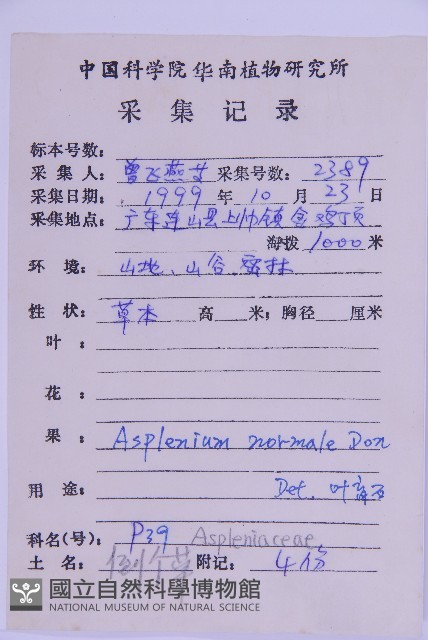 中国科学院华南植物研究所
采集记录
标本号数:
采集人: 曾飞燕 采集号数: 2389
采集日期: 1999 年 10 月 23 日
采集地点: 广东连山县上帅镇金鸡顶
海拨 1000 米
环境: 山地、山谷密林
性状: 草本 高 米; 胸径 厘米
叶:
花:
果: Asplenium normale Don
用途: Det. 叶
科名(号): P39 Aspleniaceae
土名: 附记: 4份
國立自然科學博物館
NATIONAL MUSEUM OF NATURAL SCIENCE